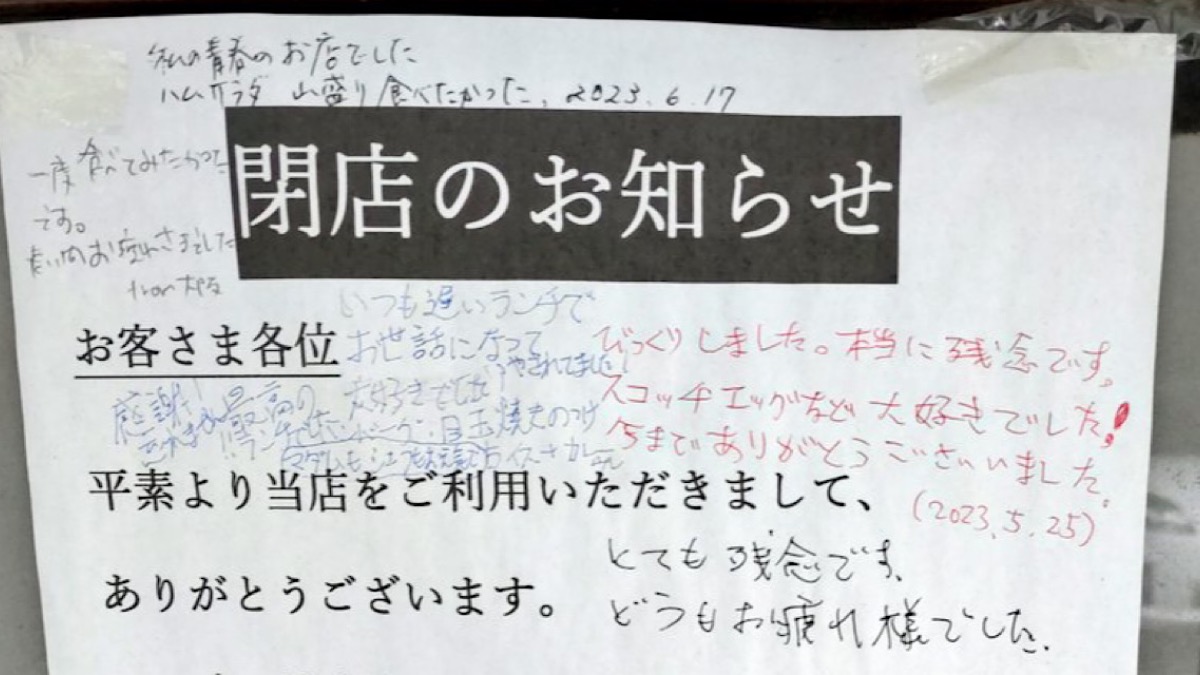 私の青春のお店でした
ハムサラダ 山盛り食べたかった、2023.6.17
閉店のお知らせ
一度食べてみたかった
です。
長い間お疲れさまでした
from
いつも遅いランチで
お世話になって
いやされてました!
大好きでした
感謝!
最高の
目玉焼きのつけ
お客さま各位
びっくりしました。本当に残念です。
スコッチエッグなど大好きでした!
今までありがとうございました。
(2023.5.25)
平素より当店をご利用いただきまして、
ありがとうございます。
とても残念です、
どうもお疲れ様でした、